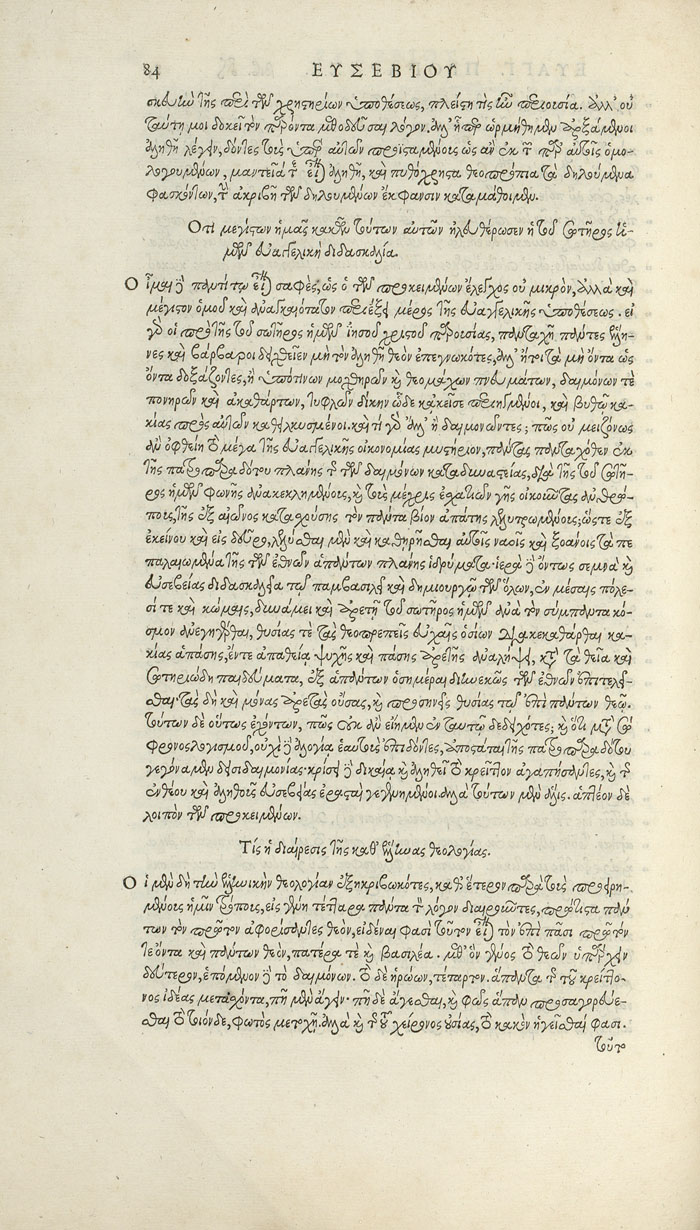 84 ΕΥΣΕΒΙΟΥ
σκευὴν τῆς περὶ τῶν χρηστηρίων ὑποθέσεως, πλείστη τὶς ἦν περιουσία. ἀλλ' οὐ
ταύτη μοι δοκεῖ τὸν παρόντα μεθοδεῦσαι λόγον. ἀλλ' ἧπερ ὡρμήθημεν ἀρξάμενοι
ἀληθῆ λέγειν, δόντες τοὺς ὑπὲρ αὐτῶν προϊσταμένους ὡς ἂν ἐκ τῶν παρ' αὐτοῖς ὁμο-
λογουμένων, μαντεῖά τε εἶναι ἀληθῆ, καὶ πυθόχρηστα θεοπρόπια τὰ δηλούμενα
φασκόντων, τὴν ἀκριβῆ τῶν δηλουμένων ἔκφανσιν καταμάθοιμεν.
Ὅτι μεγίστων ἡμᾶς κακῶν τούτων αὐτῶν ἠλευθέρωσεν ἡ τοῦ σωτῆρος ἡ-
μῶν εὐαγγελικὴ διδασκαλία.
Οἶμαι δὲ παντί τῳ εἶναι σαφές, ὡς ὁ τῶν προκειμένων ἔλεγχος οὐ μικρὸν, ἀλλὰ καὶ
μέγιστον ὁμοῦ καὶ ἀναγκαιότατον περιέξει μέρος τῆς εὐαγγελικῆς ὑποθέσεως. εἰ
γὰρ οἱ πρὸ τῆς τοῦ σωτῆρος ἡμῶν ἰησοῦ χριστοῦ παρουσίας, πανταχῆ πάντες ἕλλη-
νες καὶ βάρβαροι δειχθεῖεν μὴ τὸν ἀληθῆ θεὸν ἐπεγνωκότες, ἀλλ' ἤτοι τὰ μὴ ὄντα ὡς
ὄντα δοξάζοντες, ἢ ὑπό τινων μοχθηρῶν καὶ θεομάχων πνευμάτων, δαιμόνων τὲ
πονηρῶν καὶ ἀκαθάρτων, τυφλῶν δίκην ὧδε κἀκεῖσε περιηγμένοι, καὶ βυθῷ κα-
κίας πρὸς αὐτῶν καθειλκυσμένοι. καὶ τί γὰρ ἀλλ' ἢ δαιμονῶντες; πῶς οὐ μειζόνως
ἂν ὀφθείη τὸ μέγα τῆς εὐαγγελικῆς οἰκονομίας μυστήριον, πάντας πανταχόθεν ἐκ
τῆς πατροπαραδότου πλάνης τε τῶν δαιμόνων καταδυναστείας, διὰ τῆς τοῦ σωτῆ-
ρος ἡμῶν φωνῆς ἀνακεκλημένους, καὶ τοὺς μέχρις ἐσχατιῶν γῆς οἰκοῦντας ἀνθρώ-
πους, τῆς ἐξ αἰῶνος κατασχούσης τὸν πάντα βίον ἀπάτης λελυτρωμένους; ὥστε ἐξ
ἐκείνου καὶ εἰς δεῦρο, λελύσθαι μὲν καὶ καθηρῆσθαι αὐτοῖς ναοῖς καὶ ξοάνοις τά τε
παλαιωμένα τῆς τῶν ἐθνῶν ἁπάντων πλάνης ἱδρύματα. ἱερὰ δὲ ὄντως σεμνὰ καὶ
εὐσεβείας διδασκαλεῖα τῷ παμβασιλεῖ καὶ δημιουργῷ τῶν ὅλων, ἐν μέσαις πόλε-
σί τε καὶ κώμαις, δυνάμει καὶ ἀρετῇ τοῦ σωτῆρος ἡμῶν ἀνὰ τὸν σύμπαντα κό-
σμον ἀνεγηγέρθαι, θυσίας τὲ τὰς θεοπρεπεῖς εὐχαῖς ὁσίων διακεκαθάρθαι κα-
κίας ἁπάσης, ἔν τε ἀπαθείᾳ ψυχῆς καὶ πάσης ἀρετῆς ἀναλήψει, κατὰ τὰ θεῖα καὶ
σωτηριώδη παιδεύματα, ἐξ ἁπάντων ὁσημέραι διηνεκῶς τῶν ἐθνῶν ἐπιτελεῖ-
σθαι. τὰς δὴ καὶ μόνας ἀρεστὰς οὔσας, καὶ προσηνεῖς θυσίας τῷ ἐπὶ πάντων θεῷ.
τούτων δὲ οὕτως ἐχόντων, πῶς οὐκ ἂν εἴημεν ἐν ταυτῷ δεδειχότες; καὶ ὅτι μετὰ σώ-
φρονος λογισμοῦ, οὐχὶ δὲ ἀλογίᾳ ἑαυτοὺς ἐπιδόντες, ἀποστάται τῆς πατροπαραδότου
γεγόναμεν δεισιδαιμονίας. κρίσει δὲ δικαίᾳ καὶ ἀληθεῖ τὸ κρεῖττον ἀγαπήσαντες, καὶ τῆς
ἐνθέου καὶ ἀληθοῦς εὐσεβείας ἐρασταὶ γεγενημένοι. ἀλλὰ τούτων μὲν ἅλις. ἁπτέον δὲ
λοιπὸν τῶν προκειμένων.
Τίς ἡ διαίρεσις τῆς καθ' ἕλληνας θεολογίας.
Οἱ μὲν δὴ τὴν ἑλληνικὴν θεολογίαν ἐξηκριβωκότες, καθ' ἕτερον παρὰ τοὺς προειρη-
μένους ἡμῖν τρόπους, εἰς γένη τέτταρα πάντα τὸν λόγον διαιροῦντες, πρώτιστα πάν
των τὸν πρῶτον ἀφορίσαντες θεὸν, εἰδέναι φασὶ τοῦτον εἶναι τὸν ἐπὶ πᾶσι πρῶτόν
τε ὄντα καὶ πάντων θεὸν, πατέρα τὲ καὶ βασιλέα. μεθ' ὃν γένος τὸ θεῶν ὑπάρχειν
δεύτερον, ἑπόμενον δὲ τὸ δαιμόνων. τὸ δὲ ἡρώων, τέταρτον. ἅπαντα δὲ τῆς τοῦ κρείττο-
νος ἰδέας μετασχόντα, πῆ μὲν ἄγειν. πῆ δὲ ἄγεσθαι, καὶ φῶς ἅπαν προσαγορεύε-
σθαι τὸ τοιόνδε, φωτὸς μετοχῇ. ἀλλὰ καὶ τῆς τοῦ χείρονος οὐσίας, τὸ κακὸν ἡγεῖσθαί φασι.
τοῦτο